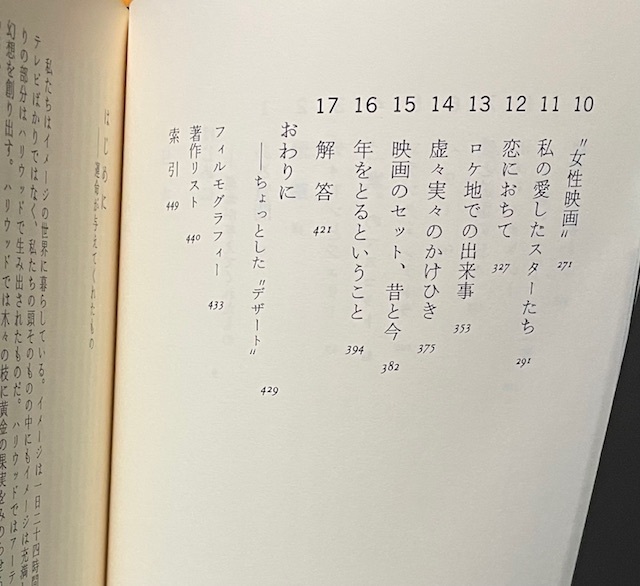 10 〝女性映画〟 271
11 私の愛したスターたち 291
12 恋におちて 327
13 ロケ地での出来事 353
14 虚々実々のかけひき 375
15 映画のセット、昔と今 382
16 年をとるということ 394
17 解答 421
おわりに
――ちょっとした〝デザート〟 429
フィルモグラフィー 433
著作リスト 440
索引 449
はじめに
――運命が与えてくれたもの
私たちはイメージの世界に暮らしている。イメージは一日二十四時間
テレビばかりではなく、私たちの頭そのものの中にもイメージは充満
りの部分はハリウッドで生み出されたものだ。ハリウッドではアーテ
幻想を創り出す。ハリウッドでは木々の枝に黄金の果実をみのらせ